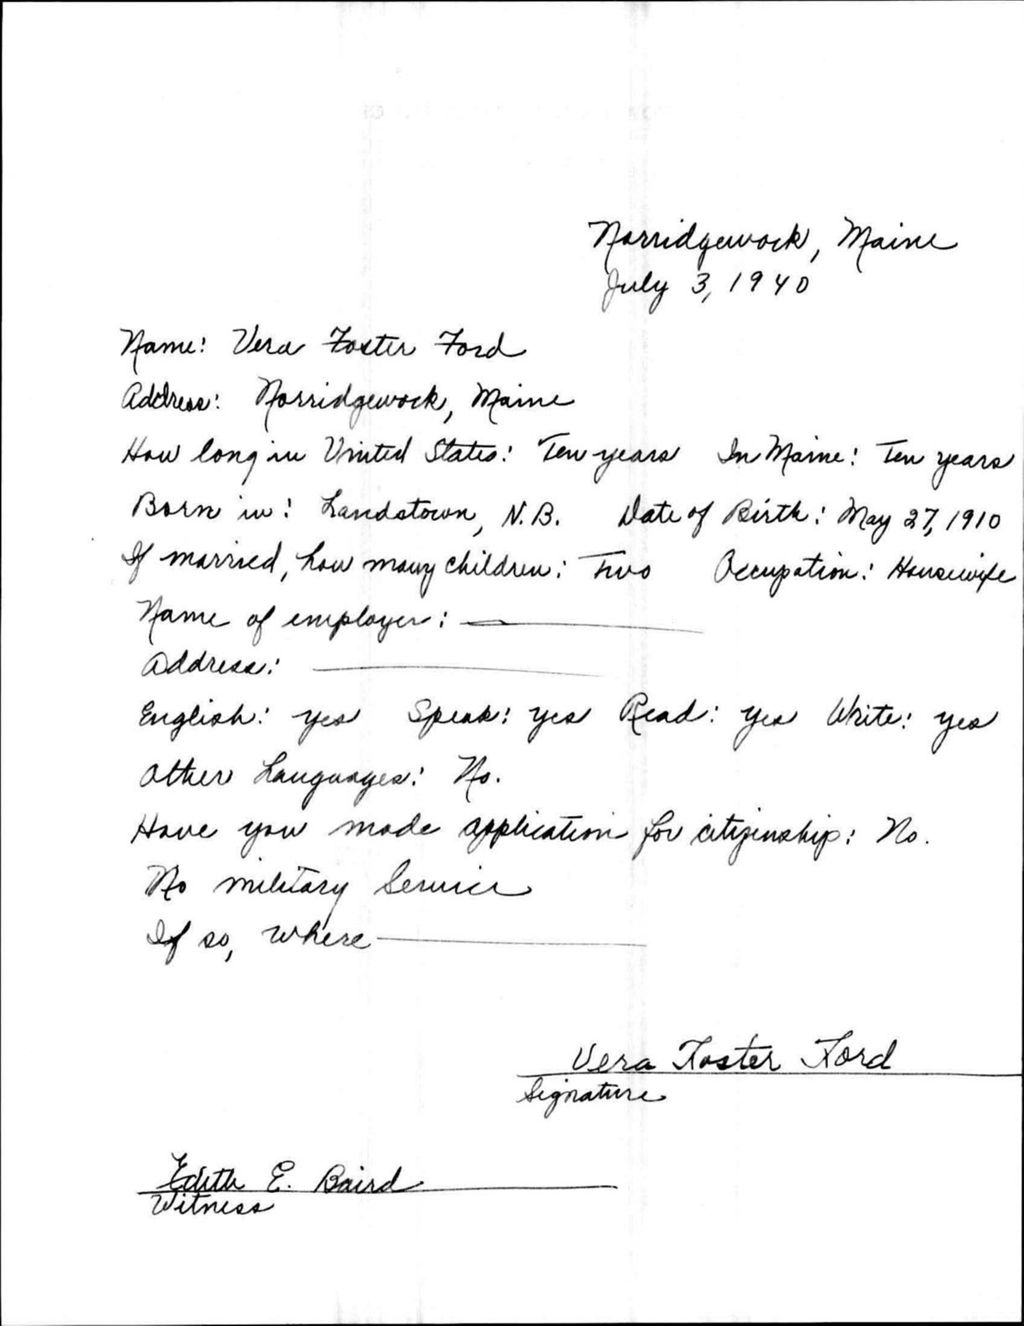 Norridgewock, Maine
July 3, 1940
Name: Vera Foster Ford
Address: Norridgewock, Maine
How long in United States: Ten years In Maine: Ten years
Born in: Landstown, N.B. Date of Birth: May 27, 1910
If married, how many children: Two Occupation: Housewife
Name of employer:
Address:
English: yes Speak: yes Read: yes Write: yes
Other Languages: No.
Have you made application for citizenship: No.
No military Service
If so, where
Vera Foster Ford
Signature
Edith E. Baird
Witness